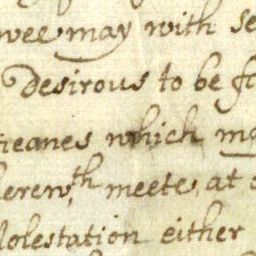 wee may with se
desirous to be fo
meanes which ma
herewth meete, at
olestation either